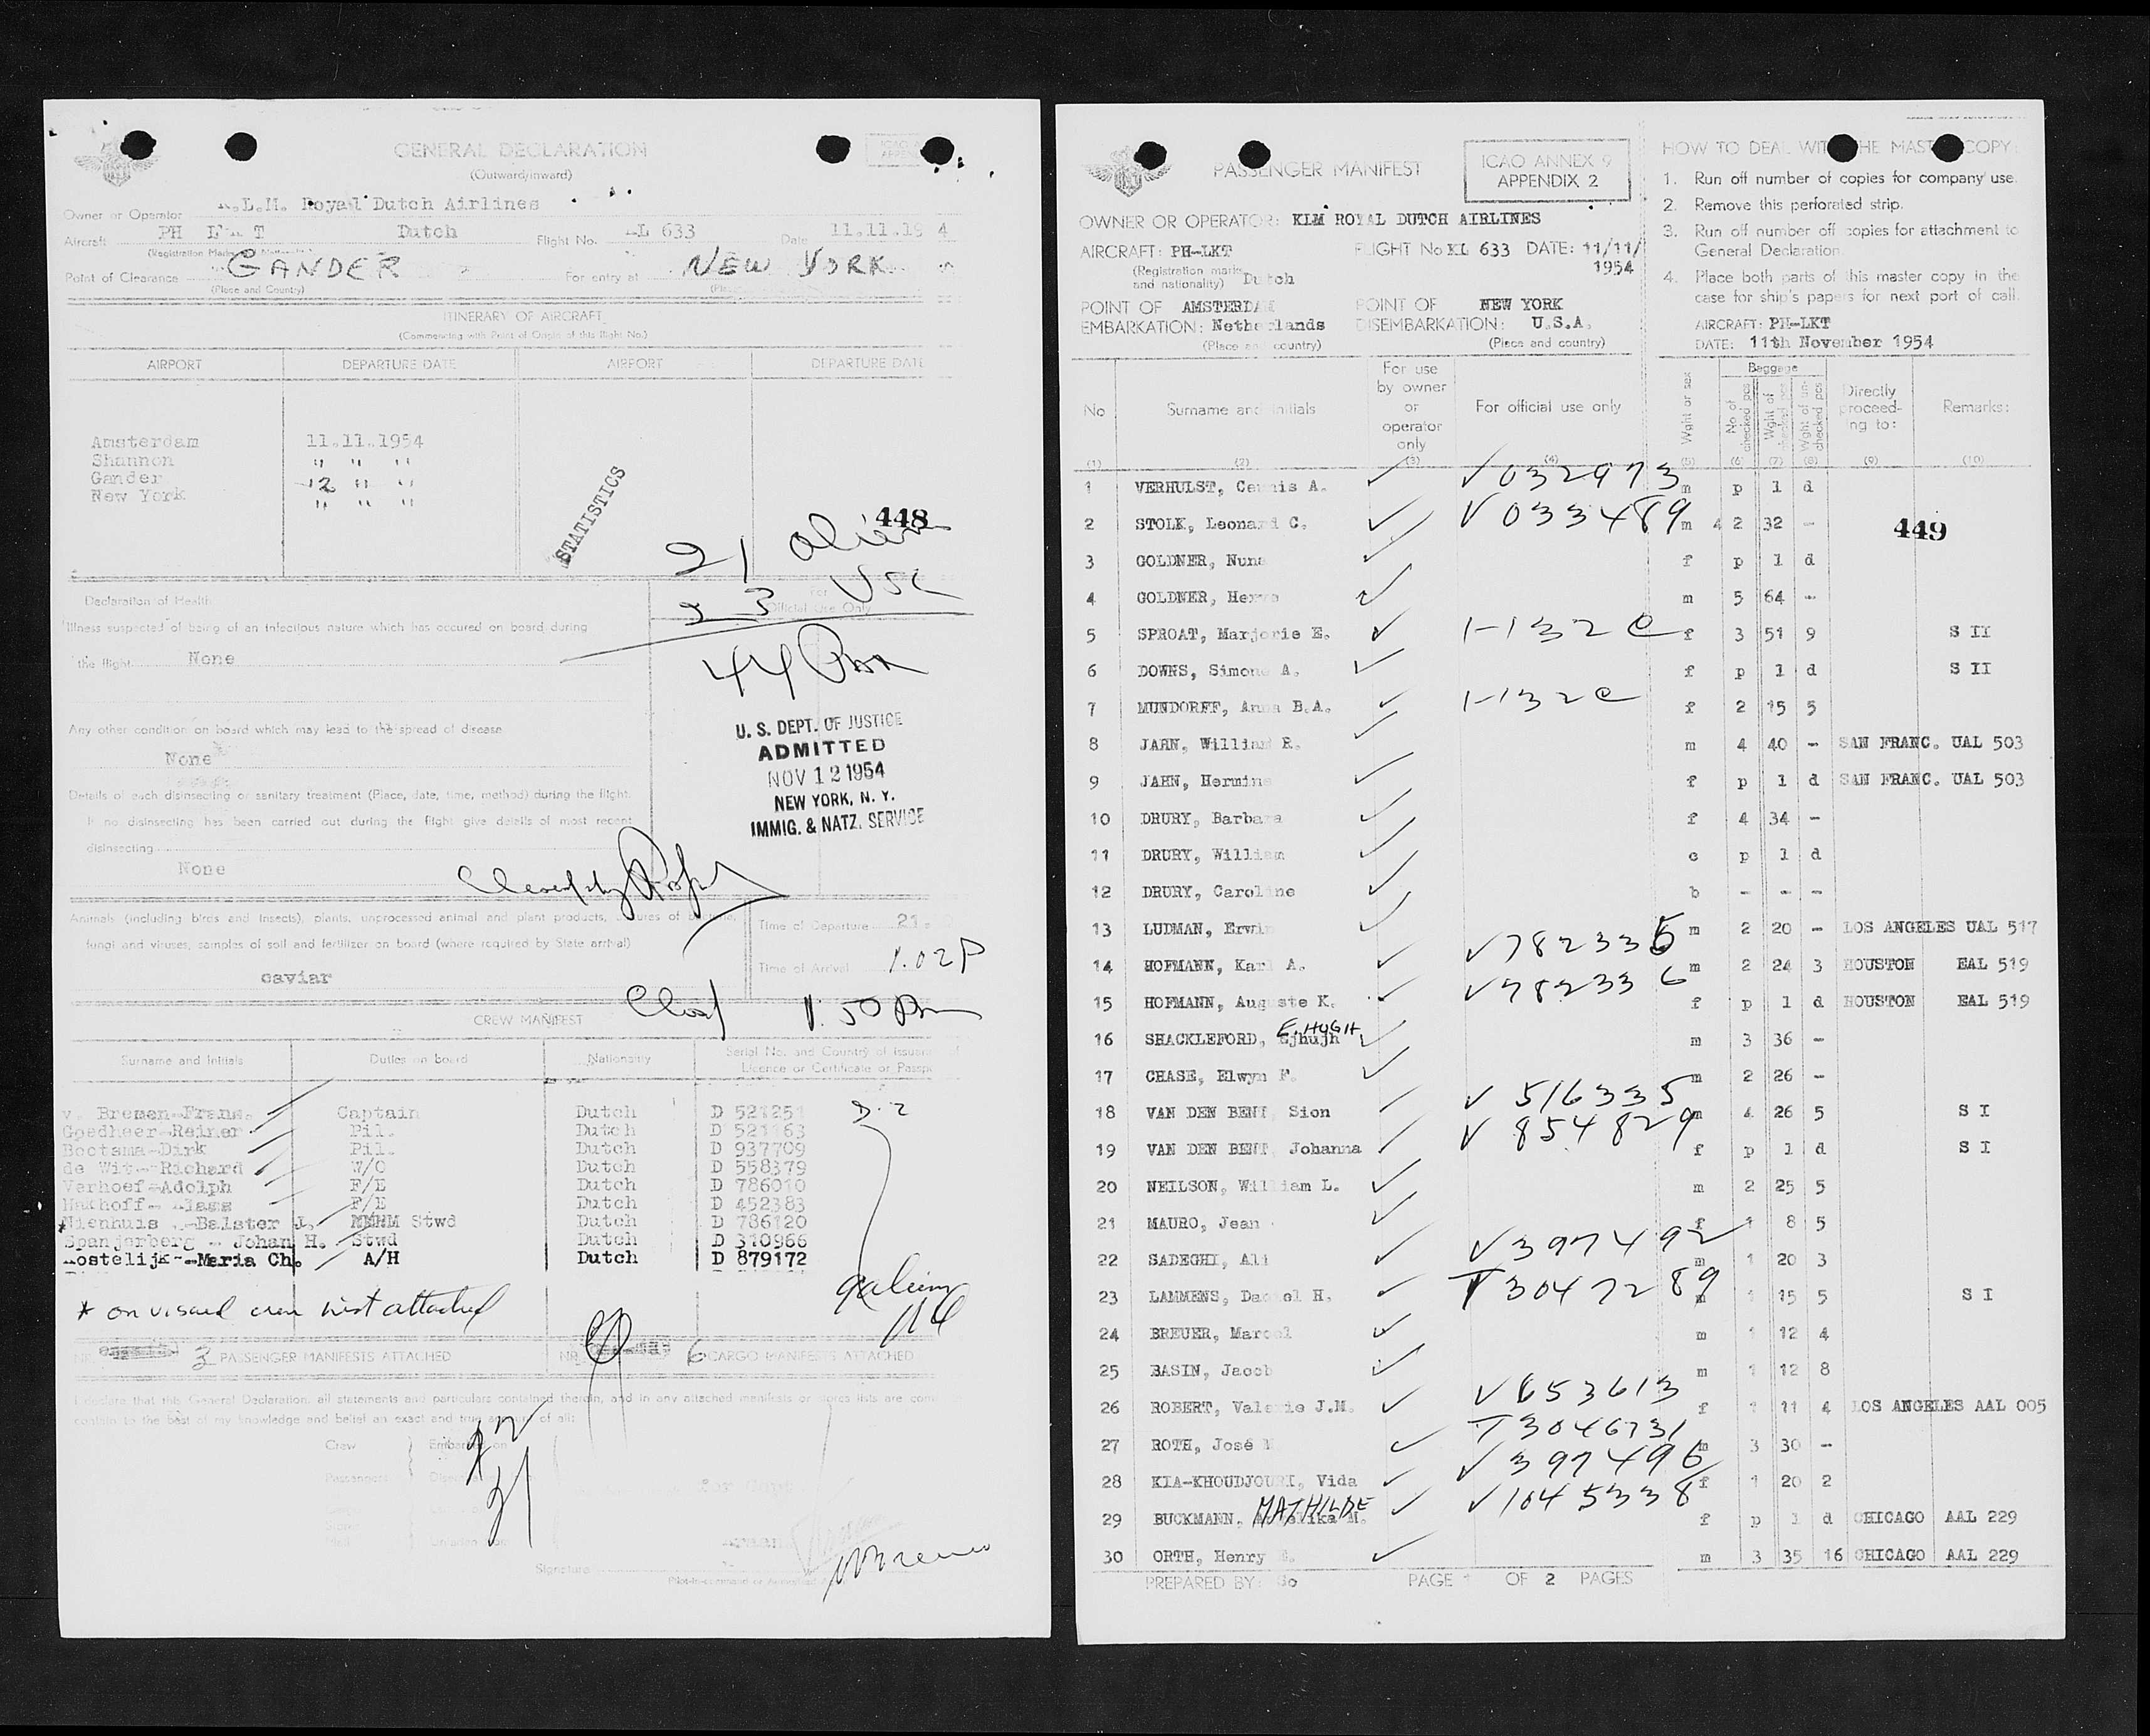 GENERAL DECLARATION
(Outward/Inward)
Owner or Operator K.L.M. Royal Dutch Airlines
Aircraft PH Dutch Flight No. KL 633 Date 11.11.19 4
Point of Clearance GANDER For entry at NEW YORK
(Place and Country)
ITINERARY OF AIRCRAFT
(Commencing with Point of Origin of this flight No.)
AIRPORT DEPARTURE DATE AIRPORT DEPARTURE DATE
Amsterdam 11.11.1954
Shannon " " "
Gander 12 " "
New York " " "
STATISTICS
448
21 aliens
23 USC
44 Pax
Declaration of Health
For Official Use Only
Illness suspected of being of an infectious nature which has occured on board during
the flight None
Any other condition on board which may lead to the spread of disease
None
U. S. DEPT. OF JUSTICE
ADMITTED
NOV 12 1954
NEW YORK, N. Y.
IMMIG. & NATZ. SERVICE
Details of each disinsecting or sanitary treatment (Place, date, time, method) during the flight.
If no disinsecting has been carried out during the flight give details of most recent
disinsecting
None
Animals (including birds and insects), plants, unprocessed animal and plant products, cultures of bacteria,
fungi and viruses, samples of soil and fertilizer on board (where required by State arrival)
caviar
Time of Departure 21
Time of Arrival 1.02P
1.50 Pm
CREW MANIFEST
Surname and Initials Duties on board Nationality Serial No. and Country of issuance of
Licence or Certificate or Passport
v. Bremen-Frans. Captain Dutch D 521251 D-2
Goedheer-Reiner Pil. Dutch D 521163
Bootsma-Dirk Pil. Dutch D 937709
de Wit--Richard W/O Dutch D 558379
Verhoef-Adolph F/E Dutch D 786010
F/E Dutch D 452383
* Nienhuis -Balster J. Stwd Dutch D 786120
Spanjerberg - Johan H. Stwd Dutch D 310966
Kostelijk--Maria Ch. A/H Dutch D 879172
9 aliens
* on visaed crew list attached
NR. 3 PASSENGER MANIFESTS ATTACHED NR. 6 CARGO MANIFESTS ATTACHED
I declare that this General Declaration, all statements and particulars contained therein, and in any attached manifests or stores lists are com
contain to the best of my knowledge and belief an exact and true account of all:
Crew Embarked on
Passengers
Signature
PASSENGER MANIFEST
ICAO ANNEX 9
APPENDIX 2
OWNER OR OPERATOR: KLM ROYAL DUTCH AIRLINES
AIRCRAFT: PH-LKT FLIGHT No KL 633 DATE: 11/11/
1954
(Registration marks
and nationality) Dutch
POINT OF AMSTERDAM POINT OF NEW YORK
EMBARKATION: Netherlands DISEMBARKATION: U.S.A.
(Place and country) (Place and country)
HOW TO DEAL WITH THE MASTER COPY:
1. Run off number of copies for company use.
2. Remove this perforated strip.
3. Run off number off copies for attachment to
General Declaration.
4. Place both parts of this master copy in the
case for ship's papers for next port of call.
AIRCRAFT: PH-LKT
DATE: 11th November 1954
No Surname and initials For use by owner or operator only For official use only Wght or sex Baggage No of checked pcs Wght of checked pcs Wght of un-checked pcs Directly proceed-ing to: Remarks:
(1) (2) (3) (4) (5) (6) (7) (8) (9) (10)
1 VERHULST, Cennis A. V032973 m p 1 d
2 STOLK, Leonard C. V033489 m 4 2 32 -
449
3 GOLDNER, Nuna f p 1 d
4 GOLDNER, m 5 64 -
5 SPROAT, Marjorie E. 1-132c f 3 51 9 S II
6 DOWNS, Simone A. f p 1 d S II
7 MUNDORFF, Anna B.A. 1-132c f 2 15 5
8 JAHN, William R. m 4 40 - SAN FRANC. UAL 503
9 JAHN, Hermine f p 1 d SAN FRANC. UAL 503
10 DRURY, Barbara f 4 34 -
11 DRURY, William c p 1 d
12 DRURY, Caroline b - - -
13 LUDMAN, Erwin m 2 20 - LOS ANGELES UAL 517
14 HOFMANN, Karl A. V782335 m 2 24 3 HOUSTON EAL 519
15 HOFMANN, Auguste K. V782336 f p 1 d HOUSTON EAL 519
16 SHACKLEFORD, E. HUGH m 3 36 -
17 CHASE, Elwyn F. m 2 26 -
18 VAN DEN BENT, Sion V516335 m 4 26 5 S I
19 VAN DEN BENT, Johanna V854829 f p 1 d S I
20 NEILSON, William L. m 2 25 5
21 MAURO, Jean f 1 8 5
22 SADEGHI, Ali V397492 m 1 20 3
23 LAMMENS, Daniel H. T3047289 m 1 15 5 S I
24 BREUER, Marcel m 1 12 4
25 BASIN, Jacob m 1 12 8
26 ROBERT, Valerie J.M. V653613 f 1 11 4 LOS ANGELES AAL 005
27 ROTH, José T3046731 m 3 30 -
28 KIA-KHOUDJOURI, Vida V397496 f 1 20 2
29 BUCKMANN, MATHILDE M. V1045338 f p 1 d CHICAGO AAL 229
30 ORTH, Henry m 3 35 16 CHICAGO AAL 229
PREPARED BY: So PAGE 1 OF 2 PAGES